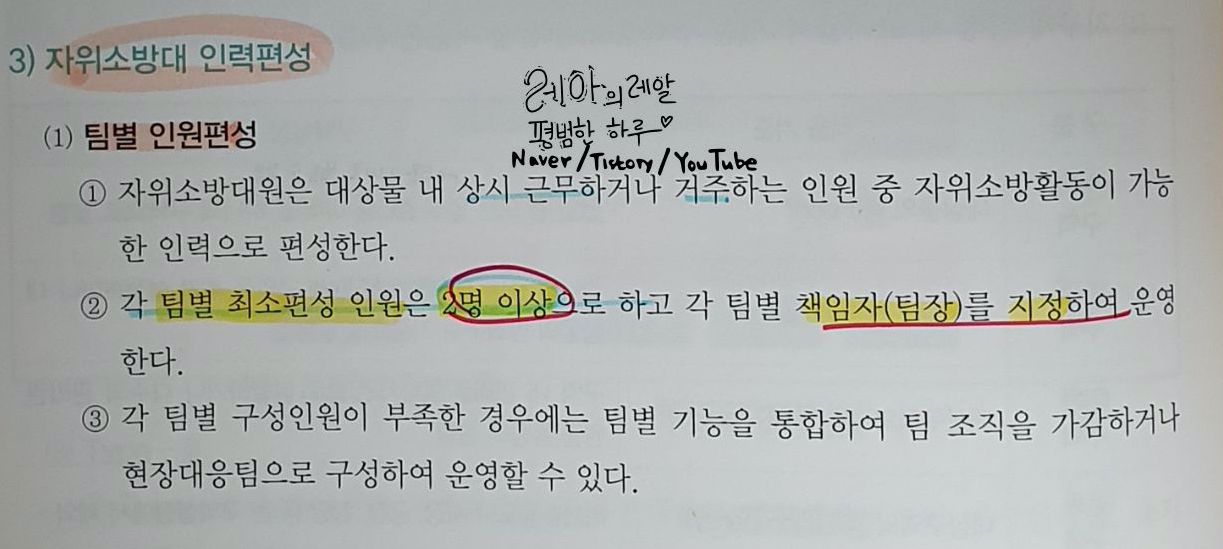 3) 자위소방대 인력편성
레아의레알
평범한 하루♡
Naver/Tistory/YouTube
(1) 팀별 인원편성
① 자위소방대원은 대상물 내 상시 근무하거나 거주하는 인원 중 자위소방활동이 가능
한 인력으로 편성한다.
② 각 팀별 최소편성 인원은 2명 이상으로 하고 각 팀별 책임자(팀장)를 지정하여 운영
한다.
③ 각 팀별 구성인원이 부족한 경우에는 팀별 기능을 통합하여 팀 조직을 가감하거나
현장대응팀으로 구성하여 운영할 수 있다.